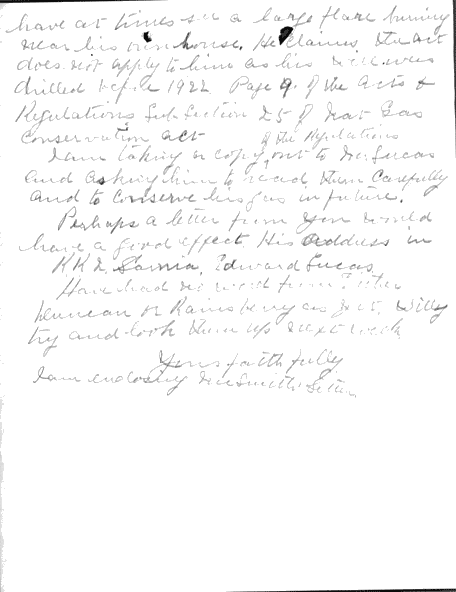 have at times seen a large flare burning
near his own house. He claims the act
does not apply to him as his well was
drilled before 1922 Page 9. of the Acts &
Regulations Sub Section 25 of Nat Gas
Conservation act of the Regulations
I am taking a copy out to Mr. Lucas
and asking him to read them carefully
and to conserve his gas in future.
Perhaps a letter from you would
have a good effect His address in
R.R.2. Sarnia, Edward Lucas
Have had no word from either
Duncan or Rainsberry as yet. Will
try and look them up next week
Yours faithfully
I am enclosing Mr Smiths letter